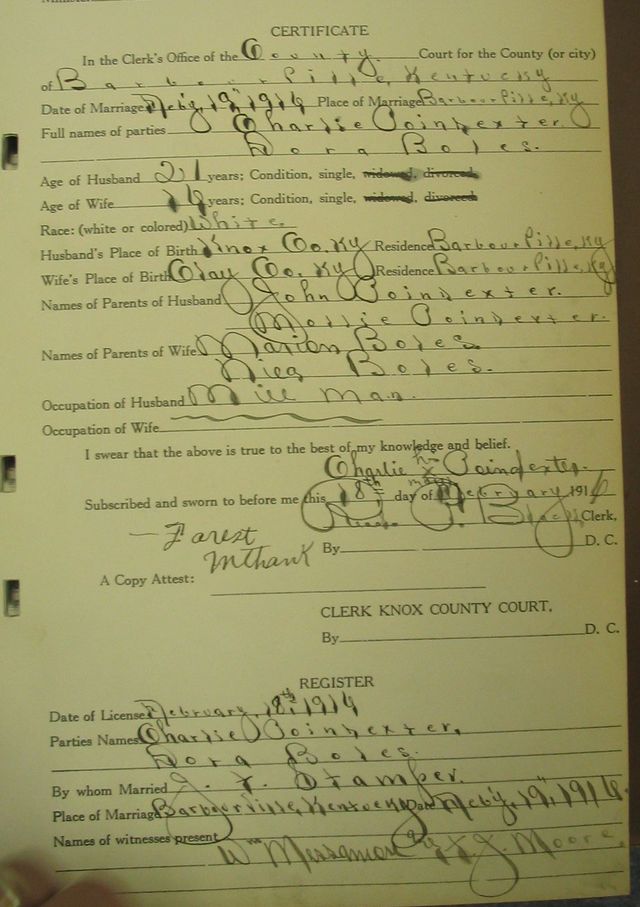 CERTIFICATE
In the Clerk's Office of the County Court for the County (or city)
of Barbourville, Kentucky
Date of Marriage Feb'y, 19", 1916 Place of Marriage Barbourville, Ky
Full names of parties Charlie Poindexter.
Dora Boles.
Age of Husband 21 years; Condition, single, widowed, divorced
Age of Wife years; Condition, single, widowed, divorced
Race: (white or colored) White
Husband's Place of Birth Knox Co. Ky Residence Barbourville, Ky
Wife's Place of Birth Clay Co. Ky Residence Barbourville, Ky
Names of Parents of Husband John Poindexter.
Mollie Poindexter.
Names of Parents of Wife Marion Boles
Boles.
Occupation of Husband Mill man.
Occupation of Wife
I swear that the above is true to the best of my knowledge and belief.
Charlie his x mark Poindexter.
Subscribed and sworn to before me this 18th day of February 1916
Clerk,
— Forest
By D. C.
A Copy Attest:
CLERK KNOX COUNTY COURT.
By D. C.
REGISTER
Date of License February, 18th, 1916
Parties Names Charlie Poindexter,
Dora Boles.
By whom Married Stamper.
Place of Marriage Barbourville, Kentucky Date Feb'y, 19", 1916
Names of witnesses present
Wm Messamore & J. Moore,